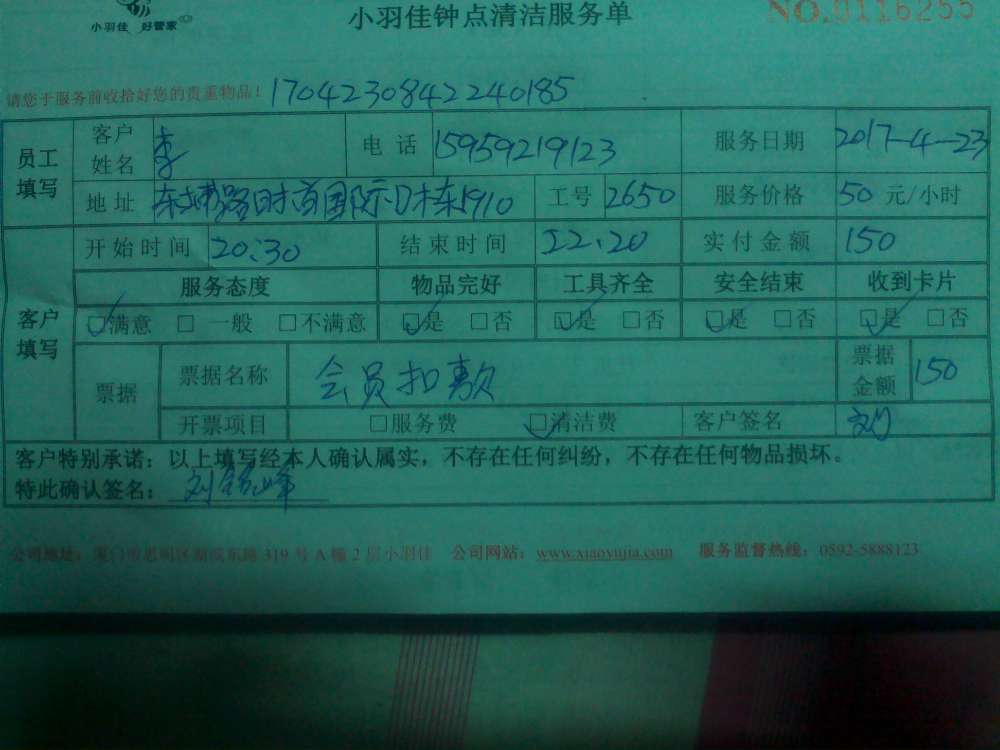 小羽佳 好管家
小羽佳钟点清洁服务单
NO.0116255
请您于服务前收拾好您的贵重物品！1704230842240185
员工填写 客户姓名 李 电话 15959219123 服务日期 2017-4-23
地址 东浦路时首国际 1910 工号 2650 服务价格 50 元/小时
客户填写 开始时间 20:30 结束时间 22:20 实付金额 150
服务态度 物品完好 工具齐全 安全结束 收到卡片
☑满意 □一般 □不满意 ☑是 □否 ☑是 □否 ☑是 □否 ☑是 □否
票据 票据名称 会员扣款 票据金额 150
开票项目 □服务费 ☑清洁费 客户签名 刘
客户特别承诺：以上填写经本人确认属实，不存在任何纠纷，不存在任何物品损坏。
特此确认签名：刘铭峰
公司地址：厦门市思明区湖滨东路 319 号 A 幢 2 层小羽佳 公司网站：www.xiaoyujia.com 服务监督热线：0592-5888123